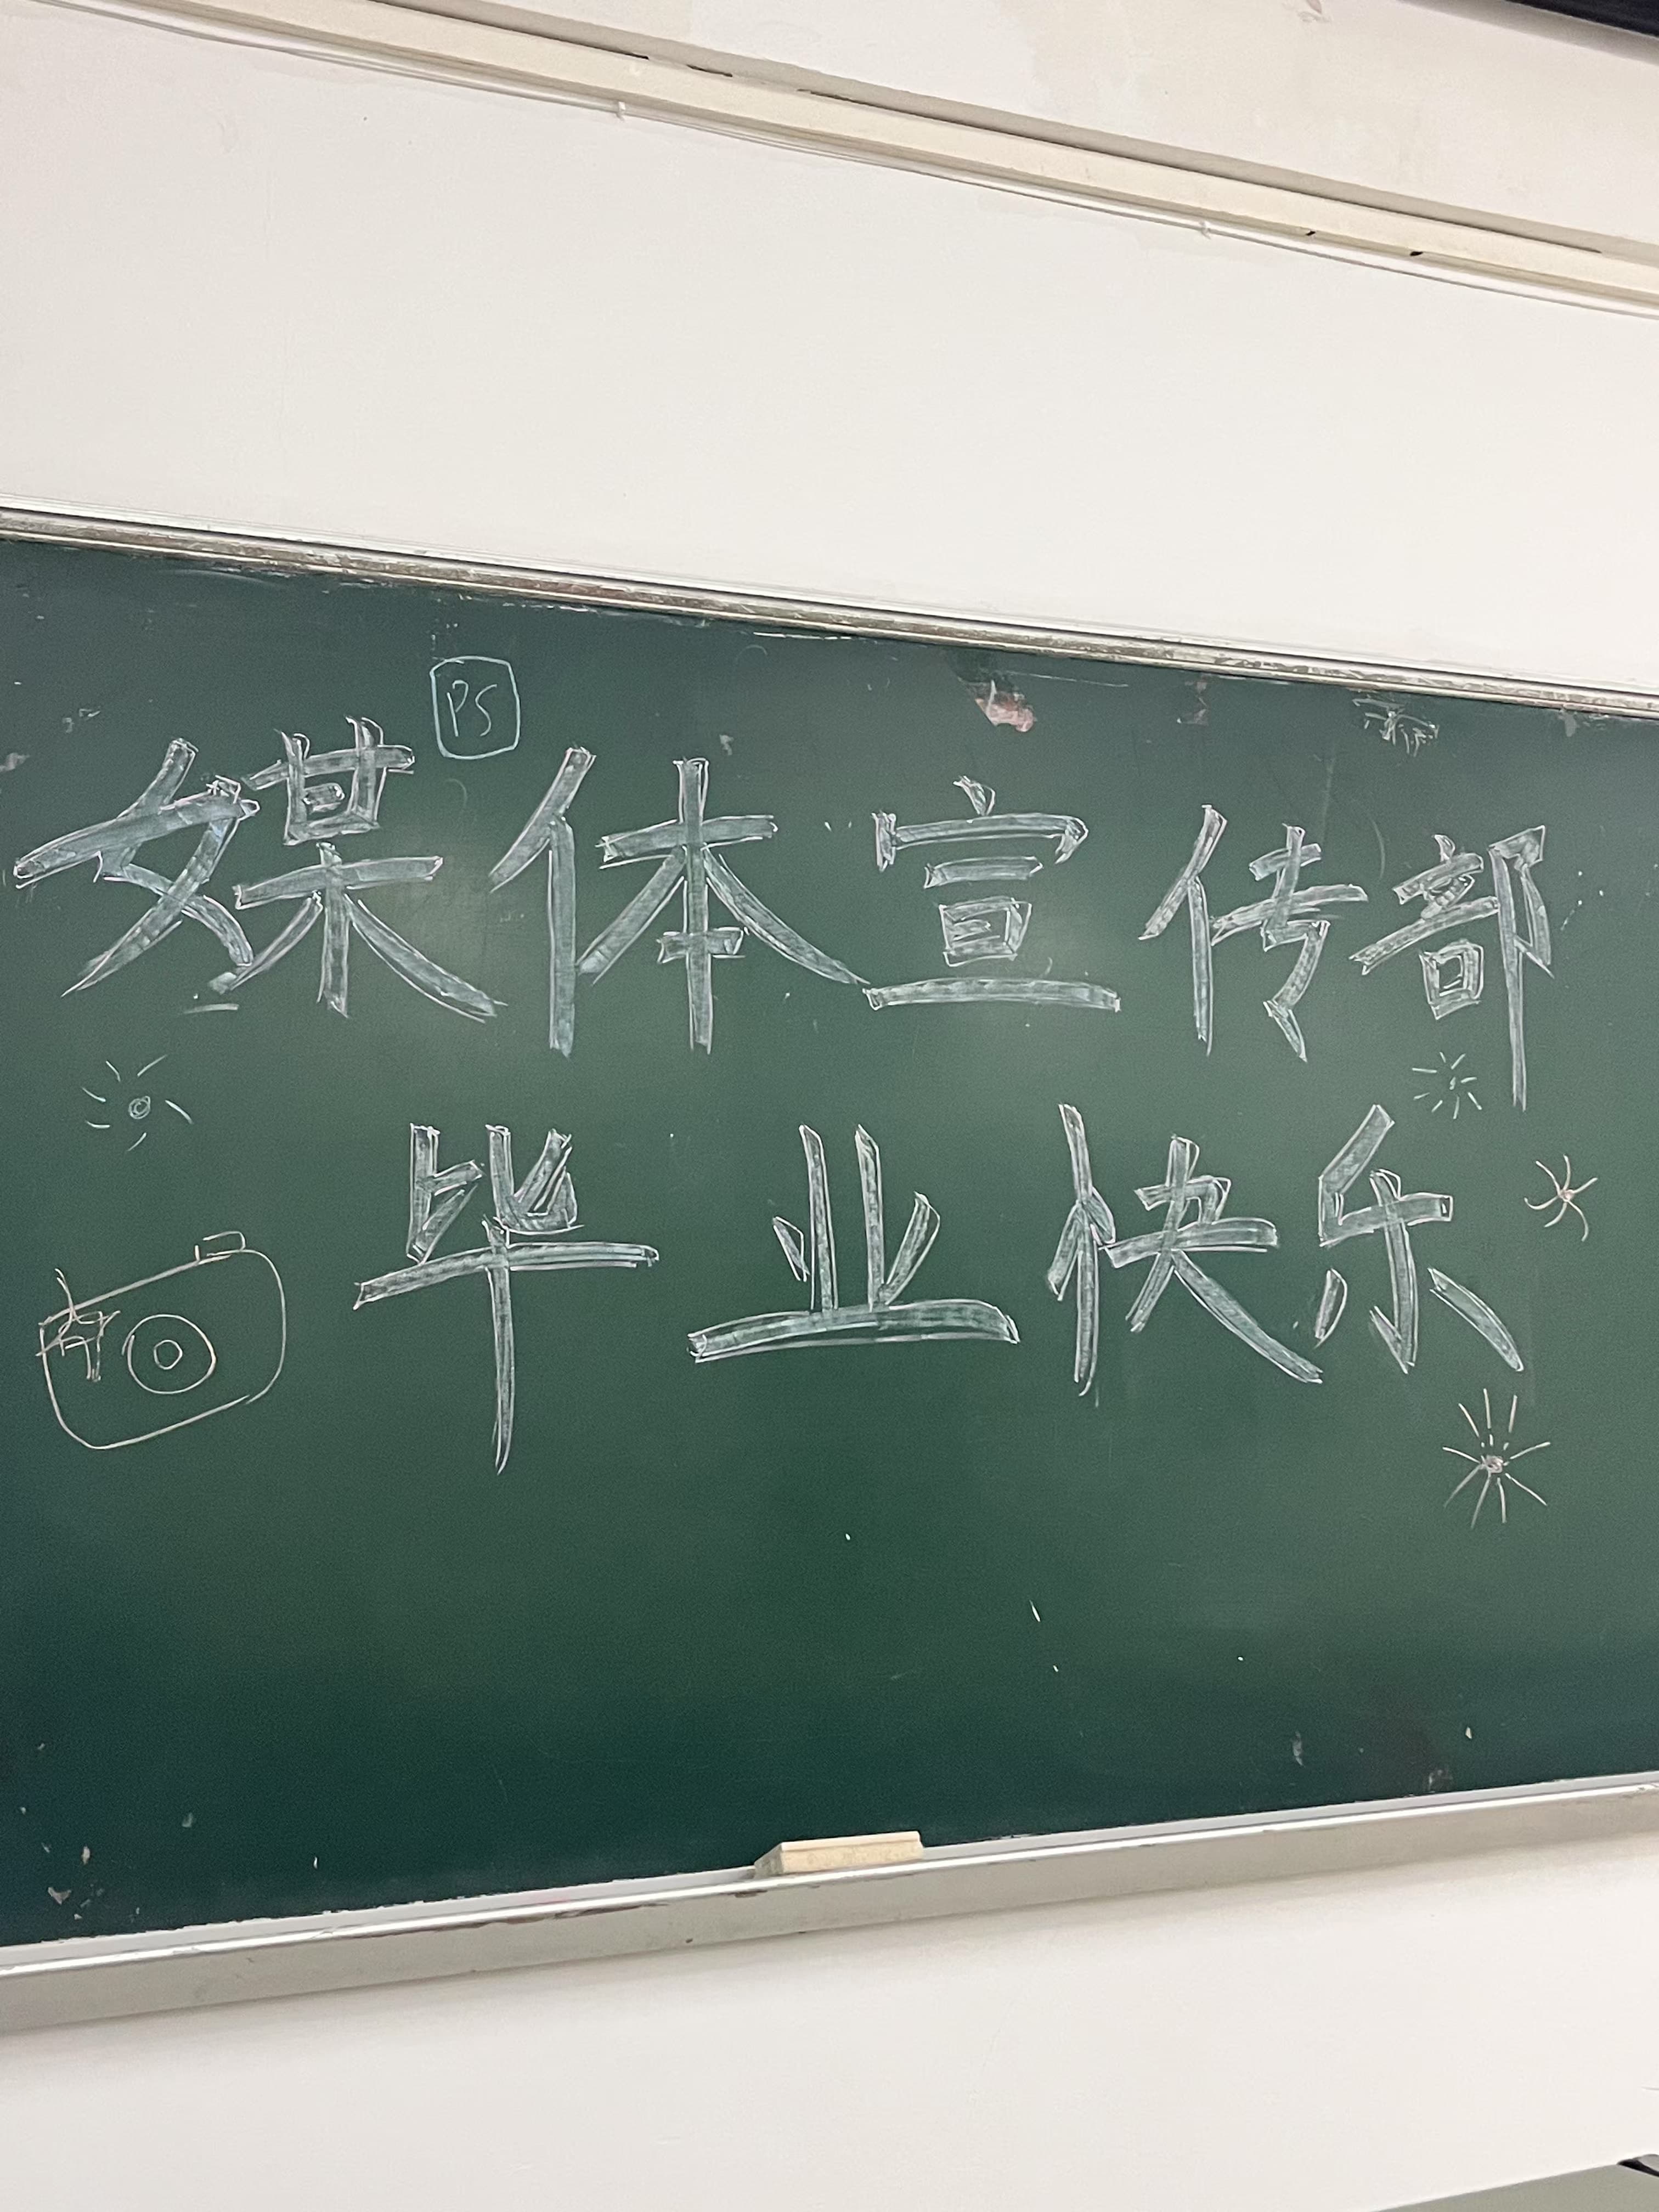 PS
媒体宣传部
毕业快乐